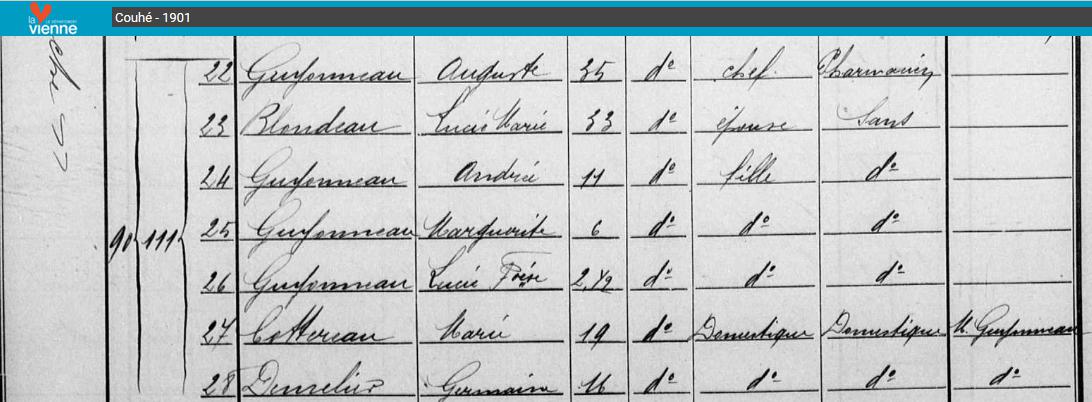 la vienne LE DÉPARTEMENT
Couhé - 1901
22 Guyonneau Auguste 35 do chef Pharmacien
23 Blondeau Lucie Marie 33 do épouse Sans
24 Guyonneau Andrée 11 do fille do
90 111 25 Guyonneau Marguerite 6 do do do
26 Guyonneau Lucie 2 1/2 do do do
27 Cottereau Marie 19 do Domestique Domestique M. Guyonneau
28 Germaine 16 do do do do